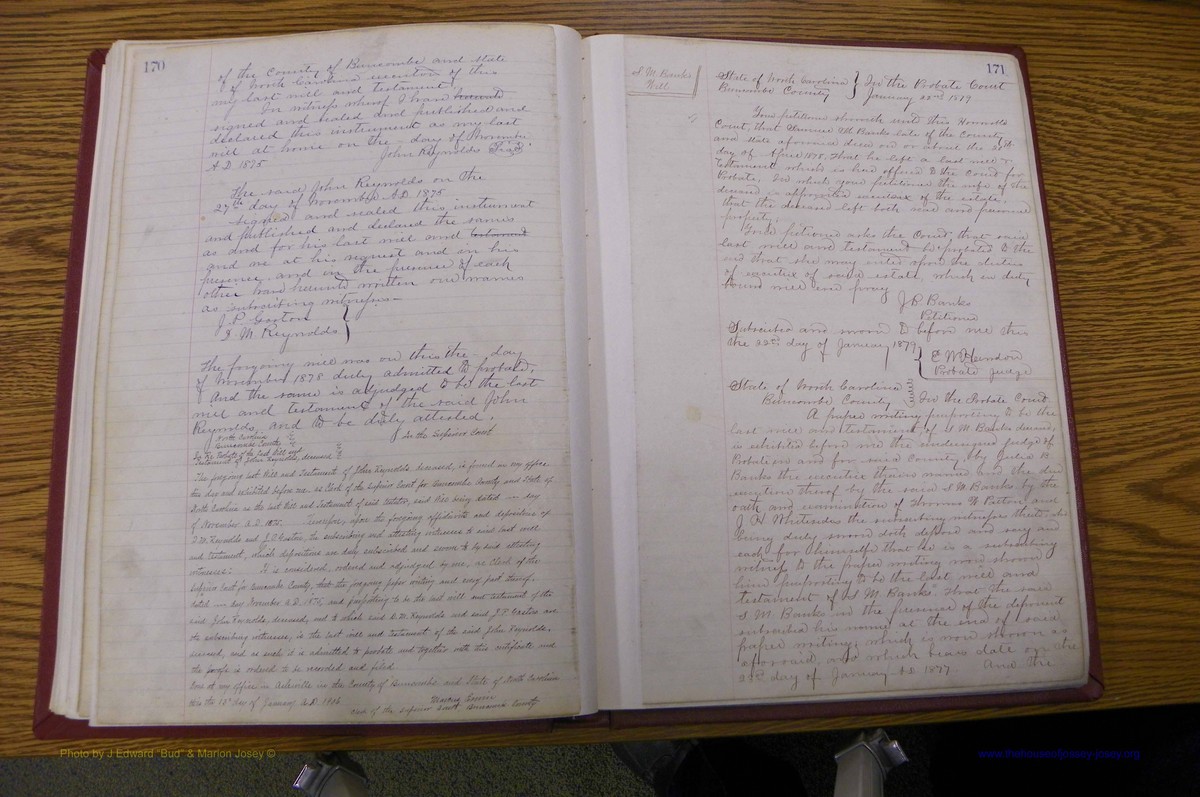 170
of the County of Buncombe and State
of North Carolina executors of this
my last will and testament.
In witness whereof I have
signed and sealed and published and
declared this instrument as my last
will at home on the day of November
A.D. 1875 John Reynolds
The said John Reynolds on the
27th day of November A.D. 1875
signed and sealed this instrument
and published and declared the same
as and for his last will and testament
and we at his request and in his
presence and in the presence of each
other have hereunto written our names
as subscribing witnesses—
J. P. Gaston
D. M. Reynolds
The forgoing will was on this the day
of November 1878 duly admitted to probate.
And the same is adjudged to be the last
will and testament of the said John
Reynolds, and to be duly attested.
North Carolina
Buncombe County In the Superior Court
In the Estate of the Last Will and
Testament of John Reynolds, deceased
The foregoing last Will and Testament of John Reynolds, deceased, is found in my office
this day and exhibited before me as Clerk of the Superior Court for Buncombe County and State of
North Carolina as the last Will and Testament of said testator, said Will being dated day
of November A.D. 1875. upon the foregoing affidavits and depositions of
D. M. Reynolds and J. P. Gaston, the subscribing and attesting witnesses to said last will
and testament, which depositions are duly subscribed and sworn to by said attesting
witnesses: It is considered, ordered and adjudged by me, as Clerk of the
Superior Court for Buncombe County, that the foregoing paper writing and every part thereof,
dated day November A.D. 1875, and purporting to be the last will and testament of the
said John Reynolds, deceased, and to which said D. M. Reynolds and said J. P. Gaston are
the subscribing witnesses, is the last will and testament of the said John Reynolds,
deceased, and as such it is admitted to probate and together with this certificate and
the proofs is ordered to be recorded and filed.
Done at my office in Asheville in the County of Buncombe and State of North Carolina
this the 10th day of January A.D. 1906.
Marcus Erwin
Clerk of the Superior Court Buncombe County
171
S. M. Banks
Will
State of North Carolina In the Probate Court
Buncombe County January 22nd 1879
Your petitioner sheweth unto this Honorable
Court, that M Banks late of the County
and State aforesaid died on or about the
day of April 1878. That he left a last will &
testament which is here offered to the Court for
Probate, In which your petitioner the wife of the
deceased is appointed executrix of the estate.
that the deceased left both real and personal
property.
Your petitioner asks the Court that said
last will and testament be probated & the
and that she may enter upon the duties
of executrix of said estate which in duty
bound will ever pray
J. B. Banks
Petitioner
Subscribed and sworn to before me this
the 22nd day of January 1879
E W Herndon
Probate Judge
State of North Carolina
Buncombe County In the Probate Court
A paper writing purporting to be the
last will and testament of S M Banks deceased,
is exhibited before me the undersigned judge of
Probate in and for said County, by Julia B.
Banks the executrix therein named and the due
execution thereof by the said S M Banks by the
oath and examination of Thomas W Patton and
J. H Whitesides the subscribing witnesses thereto who
being duly sworn doth depose and say and
each for himself that he is a subscribing
witness to the paper writing now shown
him purporting to be the last will and
testament of S M Banks. That the said
S. M. Banks in the presence of the deponent
subscribed his name at the end of said
paper writing, which is now shown as
aforesaid, and which bears date on the
day of January A.D. 1877. And the
Photo by J Edward "Bud" & Marion Josey ©
www.thehouseofjossey-josey.org